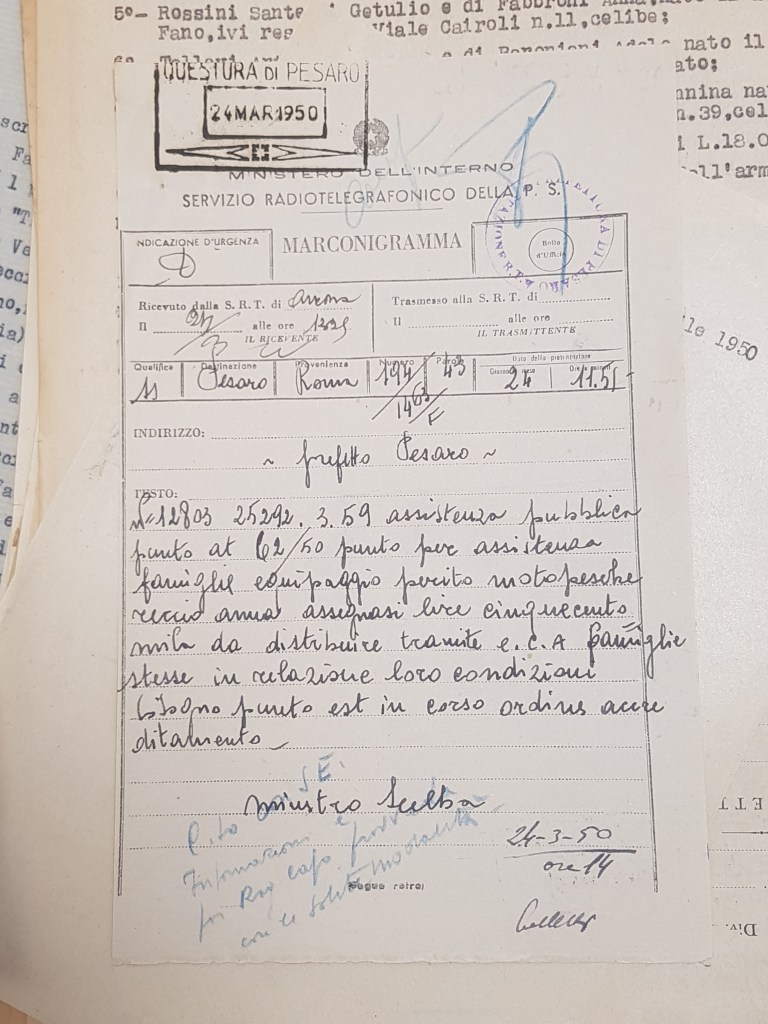 5º- Rossini Sante Getulio e di Fabbroni Anna,
Fano,ivi res Viale Cairoli n.11,celibe;
nato il
ato;
nnina na
n.39,cel
i L.18.0
ell'arm
QUESTURA DI PESARO
24 MAR 1950
MINISTERO DELL'INTERNO
SERVIZIO RADIOTELEGRAFONICO DELLA P. S.
INDICAZIONE D'URGENZA
MARCONIGRAMMA
Bollo
d'Ufficio
Ricevuto dalla S. R. T. di Ancona
Trasmesso alla S. R. T. di
Il 24/3 alle ore
Il alle ore
IL RICEVENTE
IL TRASMITTENTE
Qualifica Destinazione Provenienza Numero Parole Data della presentazione
Giorno e mese
SS Pesaro Roma 194/1463/E 43 24 11.55
INDIRIZZO:
~ Prefetto Pesaro ~
TESTO:
Nº=12803 25292.3.59 assistenza pubblica
punto at 62/50 punto per assistenza
famiglie equipaggio perito motopesche
reccio anna assegnasi lire cinquecento
mila da distribuire tramite e.c.A famiglie
stesse in relazione loro condizioni
bisogno punto est in corso ordine accre
ditamento
Ministro Scelba
S.E.
Informazioni e
per Rag capo
con le solite modalità
24-3-50
ore 14
(segue retro)
ile 1950
Div.